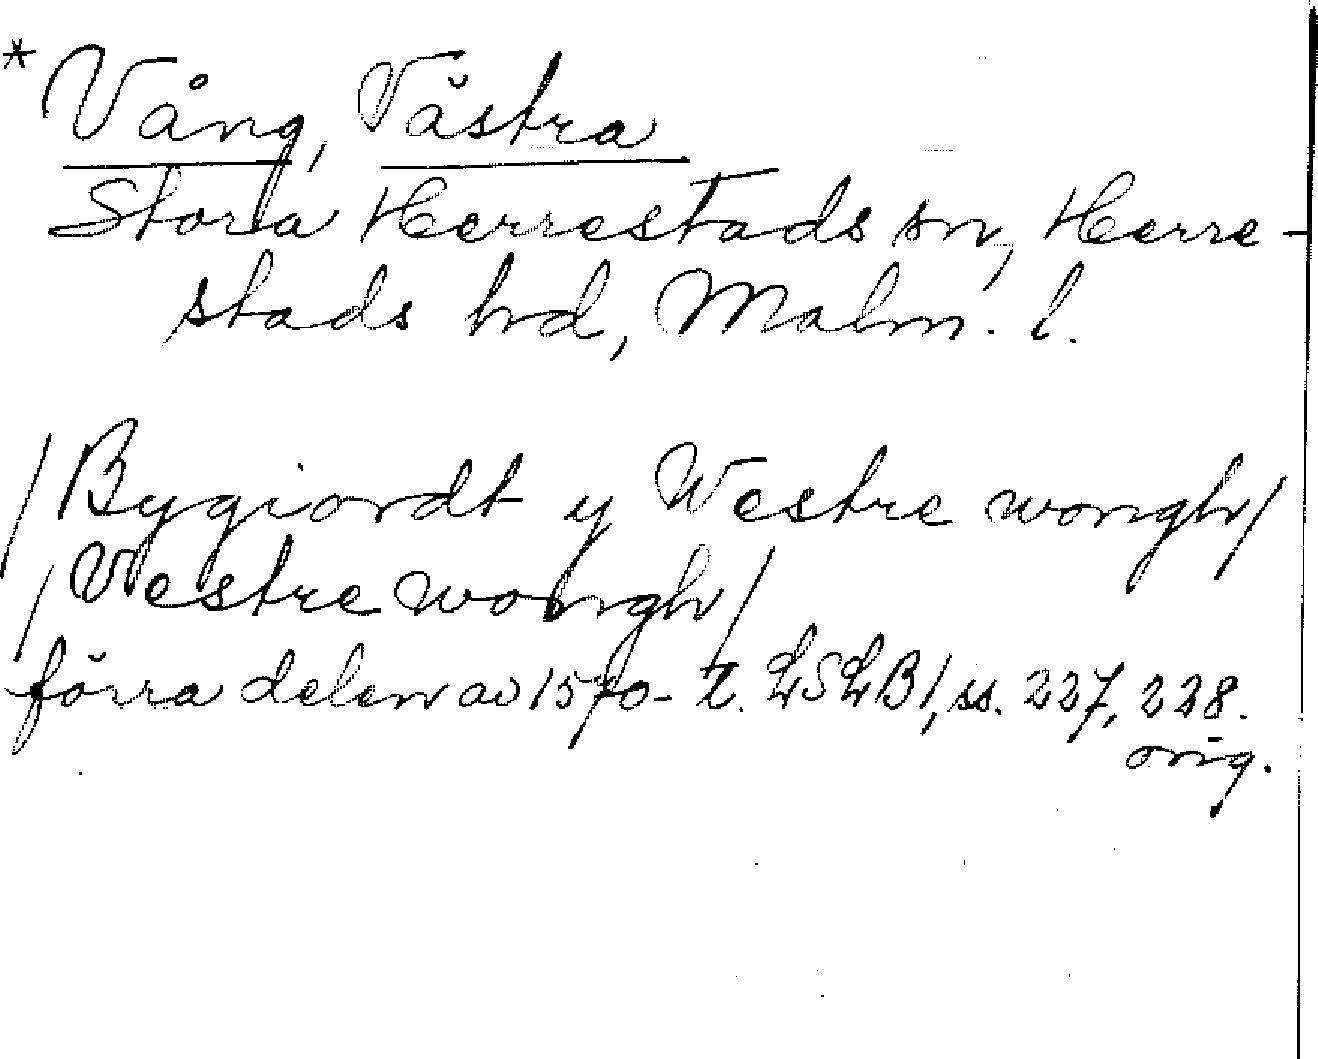 * Vång, Västra
Stora Herrestads sn, Herre-
stads hd, Malm. l.
/Bygiordt y Westre wongh/
/Vestre wongh/
förra delen av 1570- t. LSLB1, ss. 227, 228.
orig.